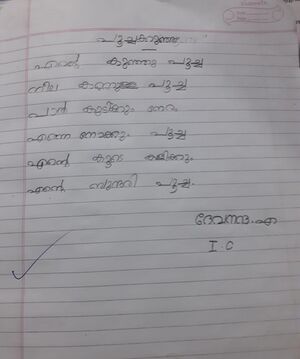 പൂച്ചകുഞ്ഞ്
എന്റെ കുഞ്ഞു പൂച്ച
നീല കണ്ണുള്ള പൂച്ച
പാൽ കുടിക്കും നേരം
എന്നെ നോക്കും പൂച്ച
എന്റെ കൂടെ കളിക്കും
എന്റെ സുന്ദരി പൂച്ച.
ദേവനന്ദ.എ
I.C